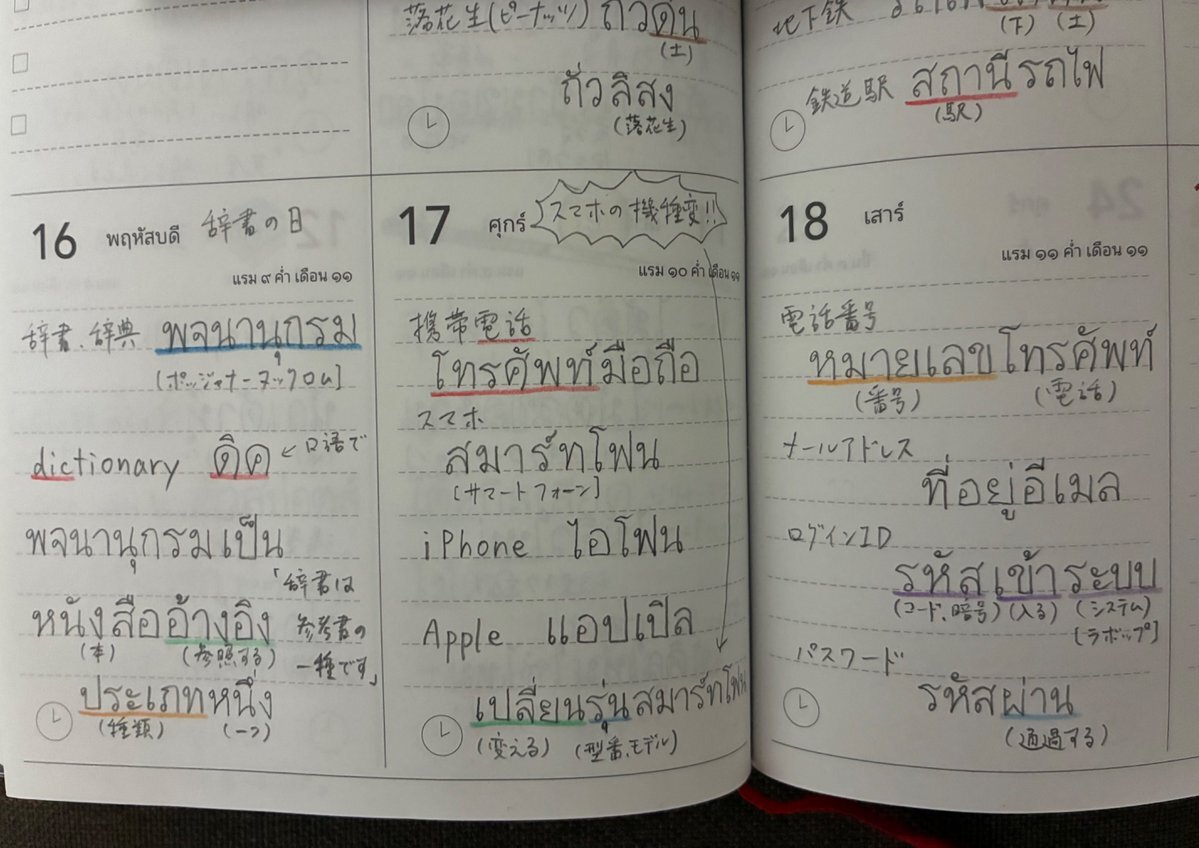 落花生(ピーナッツ) ถั่วดิน
(土)
ถั่วลิสง
(落花生)
地下鉄
(下) (土)
鉄道駅 สถานีรถไฟ
(駅)
16 พฤหัสบดี 辞書の日
แรม ๙ ค่ำ เดือน ๑๑
辞書、辞典 พจนานุกรม
[ポッジャナーヌックロム]
dictionary ดิค ←口語で
พจนานุกรมเป็น
「辞書は
หนังสืออ้างอิง 参考書の
(本) (参照する) 一種です」
ประเภทหนึ่ง
(種類) (一つ)
17 ศุกร์ スマホの機種変!!
แรม ๑๐ ค่ำ เดือน ๑๑
携帯電話
โทรศัพท์มือถือ
スマホ
สมาร์ทโฟน
[サマートフォーン]
iPhone ไอโฟน
Apple แอปเปิล
เปลี่ยนรุ่นสมาร์ทโฟน
(変える) (型番、モデル)
18 เสาร์
แรม ๑๑ ค่ำ เดือน ๑๑
電話番号
หมายเลขโทรศัพท์
(番号) (電話)
メールアドレス
ที่อยู่อีเมล
ログインID
รหัสเข้าระบบ
(コード、暗号) (入る) (システム)
[ラボップ]
パスワード
รหัสผ่าน
(通過する)
24 ศุกร์